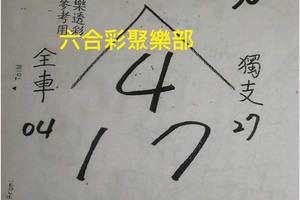 樂透彩
參考用
六合彩聚樂部
全車
4
獨支
04
17
27